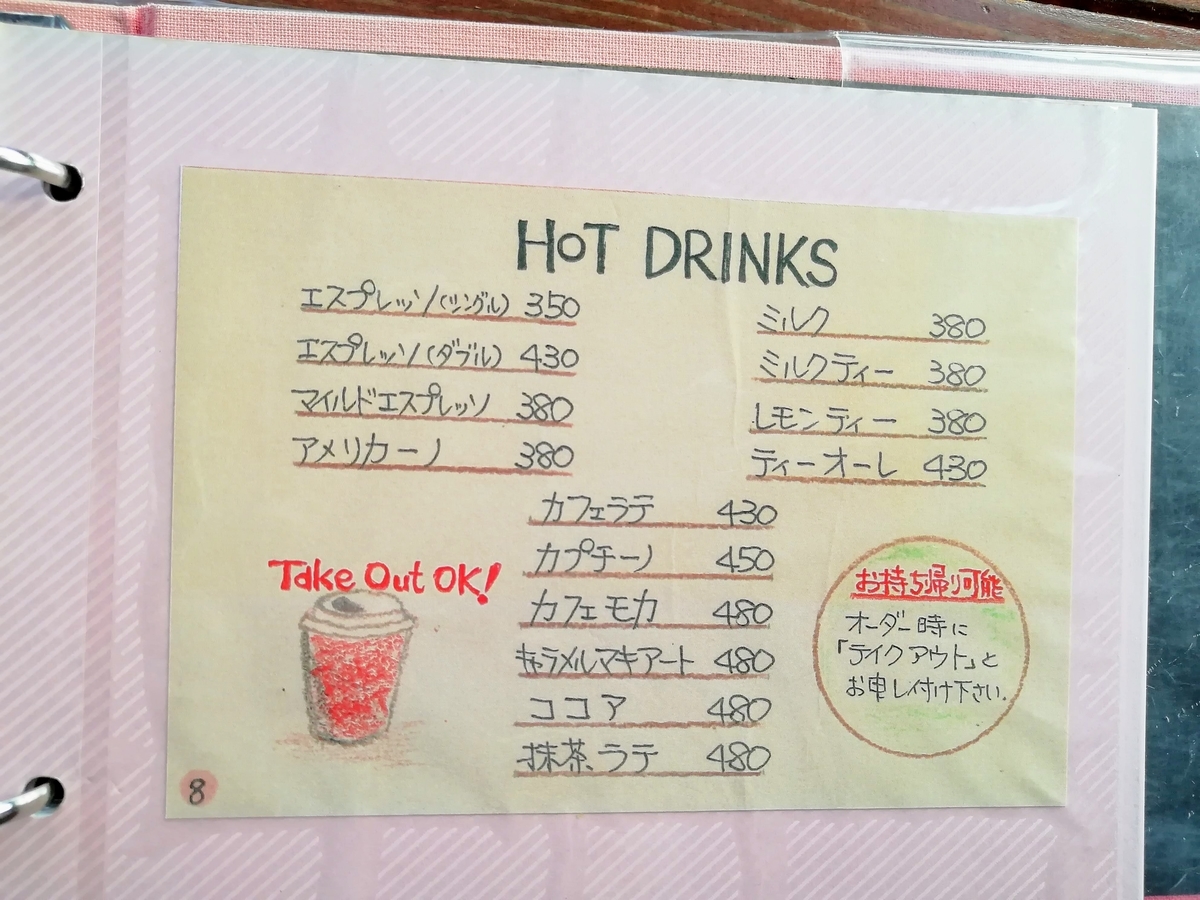 HOT DRINKS
エスプレッソ(シングル) 350
エスプレッソ(ダブル) 430
マイルドエスプレッソ 380
アメリカーノ 380
ミルク 380
ミルクティー 380
レモンティー 380
ティーオーレ 430
カフェラテ 430
カプチーノ 450
カフェモカ 480
キャラメルマキアート 480
ココア 480
抹茶ラテ 480
Take Out OK!
お持ち帰り可能
オーダー時に
「テイクアウト」と
お申し付け下さい.
8